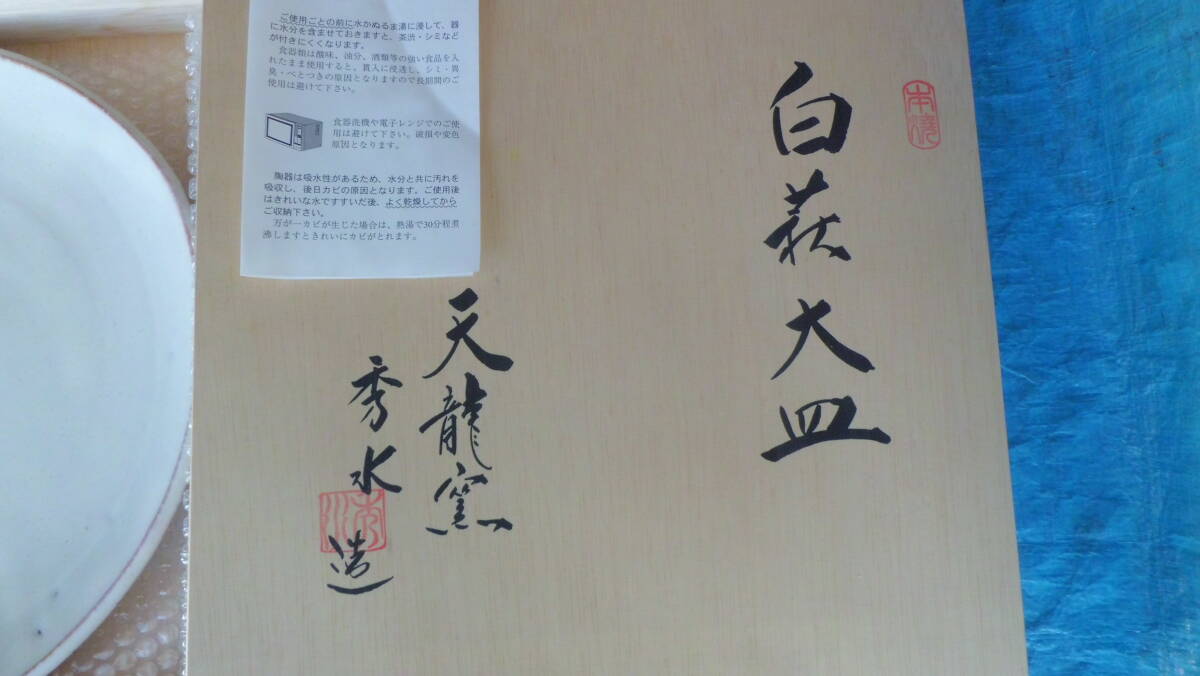 ご使用ごとの前に水かぬるま湯に浸して、器
に水分を含ませておきますと、茶渋・シミなど
が付きにくくなります。
食器類は酸味、油分、酒類等の強い食品を入
れたまま使用すると、貫入に浸透し、シミ・異
臭・べとつきの原因となりますので長期間のご
使用は避けて下さい。
食器洗機や電子レンジでのご使
用は避けて下さい。破損や変色
原因となります。
陶器は吸水性があるため、水分と共に汚れを
吸収し、後日カビの原因となります。ご使用後
はきれいな水ですすいだ後、よく乾燥してから
ご収納下さい。
万が一カビが生じた場合は、熱湯で30分程煮
沸しますときれいにカビがとれます。
本焼
白萩大皿
天龍窯
秀水
造